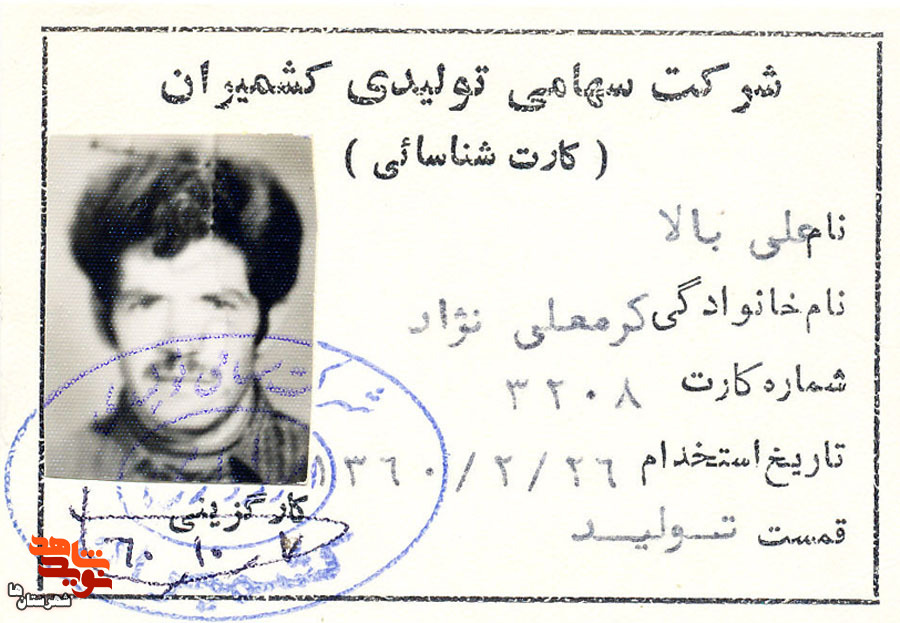 شرکت سهامی تولیدی کشمیران
( کارت شناسائی )
نام علی بالا
نام خانوادگی کرمعلی نژاد
شماره کارت ۳۲۰۸
تاریخ استخدام ۱۳۶۰/۲/۲۶
قمست تولید
کارگزینی
۶۰ ۱۰ ۷
نوید شاهد
شهرستان ها